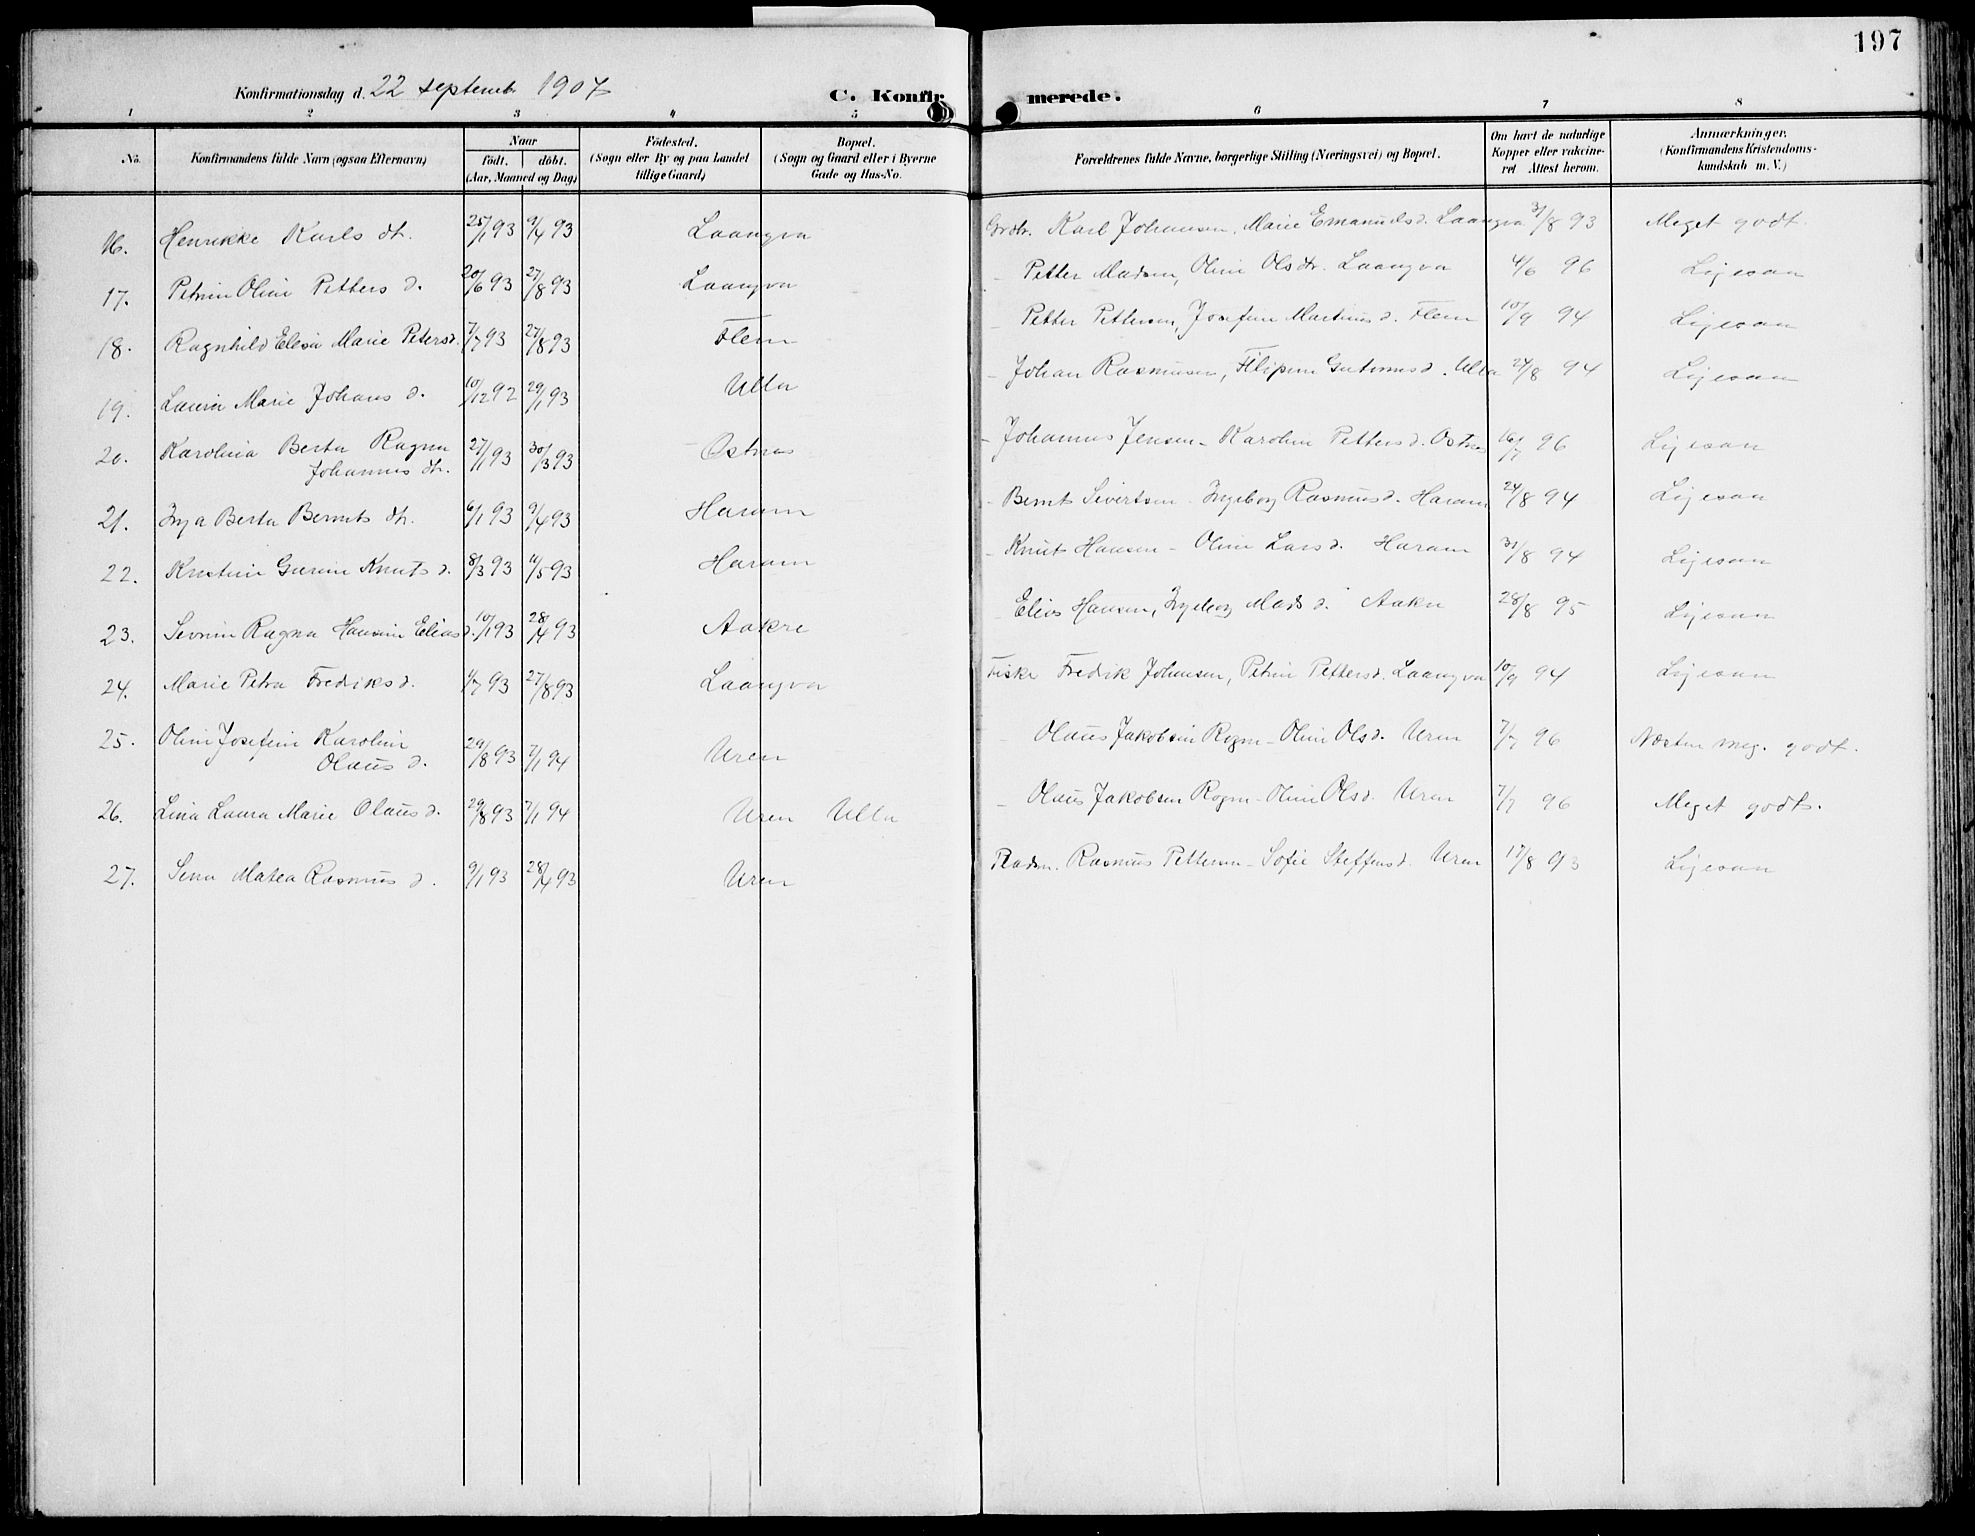 197
Konfirmationsdag d. 22 septemb 1907 C. Konfirmerede.
1 2 3 4 5 6 7 8
No. Konfirmandens fulde Navn (ogsaa Efternavn) Naar födt. döbt. (Aar, Maaned og Dag) Födested. (Sogn eller By og paa Landet tillige Gaard) Bopæl. (Sogn og Gaard eller i Byerne Gade og Hus-No. Forældrenes fulde Navne, borgerlige Stilling (Næringsvei) og Bopæl. Om havt de naturlige Kopper eller vakcineret Attest herom. Anmærkninger. (Konfirmandens Kristendomskundskab m. V.)
16. Henrikke Karls dtr. 25/1 93 9/4 93 Laangva Karl Johansen, Marie Emanuels d. Laangva 31/8 93 Meget godt.
17. Petrine Oline Petters d. 20/6 93 27/8 93 Laangva - Petter Madsen, Oline Ols dtr. Laangva 4/6 96 Ligesaa
18. Ragnhild Elesa Marie Peters d. 7/7 93 27/8 93 Flem - Petter Pettersen, Josefine Martinus d. Flem 10/9 94 Ligesaa
19. Laura Marie Johans d. 10/12 92 29/1 93 Ulla - Johan Rasmussen, Ulla 24/8 94 Ligesaa
20. Karolina Berta Ragna 27/1 93 30/3 93 Østnes - Johannes Jensen - Karoline Petters d. Østnes 16/7 96 Ligesaa
Johannes dtr.
21. Inga Berta Bernts dtr. 6/1 93 9/4 93 Haram - Bernt Sivertsen - Ingeborg Rasmus d. Haram 24/8 94 Ligesaa
22. Kristine Gurine Knuts d. 8/3 93 11/5 93 Haram - Knut Hansen - Oline Lars d. Haram 31/8 94 Ligesaa
23. Ragna Hansine Elias d. 10/1 93 28/4 93 Aakre - Elias Hansen, Ingeborg Mads d. Aakre 28/8 95 Ligesaa
24. Marie Petra Fredriks d. 1/7 93 27/8 93 Laangva Fisker Fredik Johansen, Petrine Petters d. Laangva 10/9 94 Ligesaa
25. Oline Josefine Karoline 29/8 93 7/1 94 Uren - Olaus Jakobsen Rogne - Oline Ols d. Uren 7/7 96 Næsten meg. godt.
Olaus d.
26. Lina Laura Marie Olaus d. 29/8 93 7/1 94 Uren Ulla - Olaus Jakobsen Rogne - Oline Ols d. Uren 7/7 96 Meget godt.
27. Sina Matea Rasmus d. 9/1 93 28/4 93 Uren Rasmus Pettersen - Sofie Steffens d. Uren 17/8 93 Ligesaa